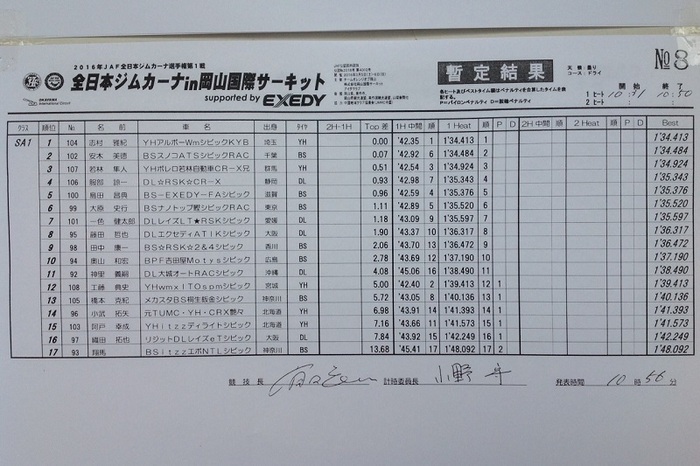 2016年JAF全日本ジムカーナ選手権第1戦
全日本ジムカーナin岡山国際サーキット
supported by EXEDY
暫定結果
天候：曇り
コース：ドライ
No 8
各ヒート及びベストタイム順はペナルティを合算したタイムを表記する。
P＝パイロンペナルティ D＝脱輪ペナルティ
開始 終了
1 ヒート 10:31 10:50
2 ヒート
クラス 順位 No 名前 車名 出身 タイヤ 2H-1H Top差 1H中間 順 1 Heat 順 P D 2H中間 順 2 Heat 順 P D Best
SA1 1 104 志村 雅紀 YHアルボーWmシビックKYB 埼玉 YH 0.00 '42.35 1 1'34.413 1 1'34.413
2 102 安木 美徳 BSスノコATSシビックRAC 千葉 BS 0.07 '42.61 6 1'34.484 2 1'34.484
3 107 若林 隼人 YHボレロ若林自動車CR-X兄 群馬 YH 0.51 '42.54 3 1'34.924 3 1'34.924
4 106 服部 DL☆RSK☆CR-X 静岡 DL 0.93 '42.98 7 1'35.343 4 1'35.343
5 100 島田 昌典 BS-EXEDY-FAシビック 滋賀 BS 0.96 '42.59 4 1'35.376 5 1'35.376
6 99 大原 史行 BSナノトップ鰹シビックRAC 東京 BS 1.11 '42.89 5 1'35.520 6 1'35.520
7 101 一色 健太郎 DLレイズLT★RSKシビック 愛媛 DL 1.18 '43.09 9 1'35.597 7 1'35.597
8 95 藤田 哲也 DLエクセディATIKシビック 大阪 DL 1.90 '43.37 10 1'36.317 8 1'36.317
9 98 田中 康一 BS☆RSK☆2&4シビック 香川 BS 2.06 '43.70 13 1'36.472 9 1'36.472
10 94 奥山 和宏 BPF吉田屋Motysシビック 広島 BS 2.78 '43.69 12 1'37.190 10 1'37.190
11 92 神里 義嗣 DL大城オートRACシビック 沖縄 DL 4.08 '45.06 16 1'38.490 11 1'38.490
12 108 工藤 典史 YHwmxITOspmシビック 宮城 YH 5.00 '42.40 2 1'39.413 12 1 1'39.413
13 105 橋本 克紀 メカスタBS桐生鈑金シビック 神奈川 BS 5.72 '43.05 8 1'40.136 13 1 1'40.136
14 96 小武 拓矢 元TUMC・YH・CRX艶々 北海道 YH 6.98 '43.91 14 1'41.393 14 1 1'41.393
15 103 阿戸 幸成 YHitzzディライトシビック 北海道 YH 7.16 '43.66 11 1'41.573 15 1 1'41.573
16 97 織田 拓也 リジットDLレイズeTシビック 大阪 DL 7.84 '43.92 15 1'42.249 16 1 1'42.249
17 93 翔馬 BSitzzエボNTLシビック 神奈川 BS 13.68 '45.41 17 1'48.092 17 2 1'48.092
競技長 計時委員長 小野 守 発表時間 10時56分